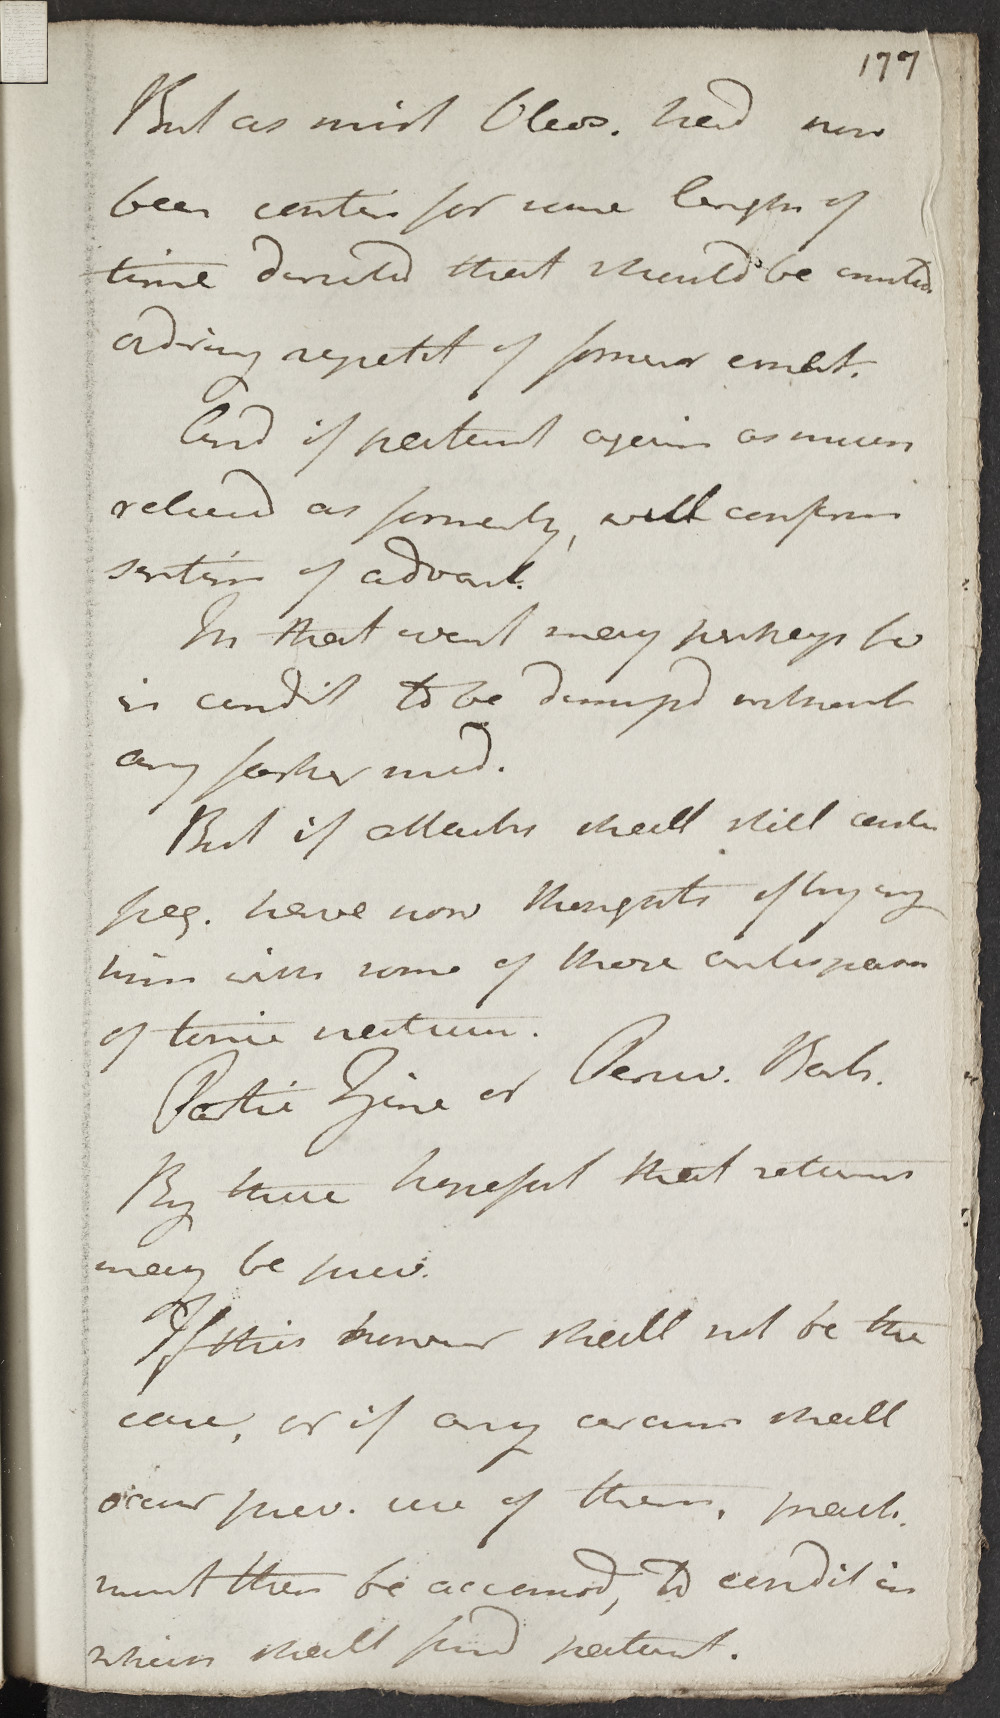 177
But as mist Oleos. had now
been contin for some length of
time directed that should be omitted
ordering repetit of former emet.
And if patient again as much
relieved as formerly, will confirm
sentim of advant.
In that event may perhaps be
in condit to be dismissd without
any farther med.
But if attacks shall still contin
freq. have now thoughts of trying
him with some of those antispasm
of tonic nature.
Partic Zinc or Peruv. Bark.
By these hopefull that returns
may be prev.
If this however shall not be the
case, or if any circums shall
occur prev. use of them, pract.
must then be accomod, to condit in
which shall find patient.